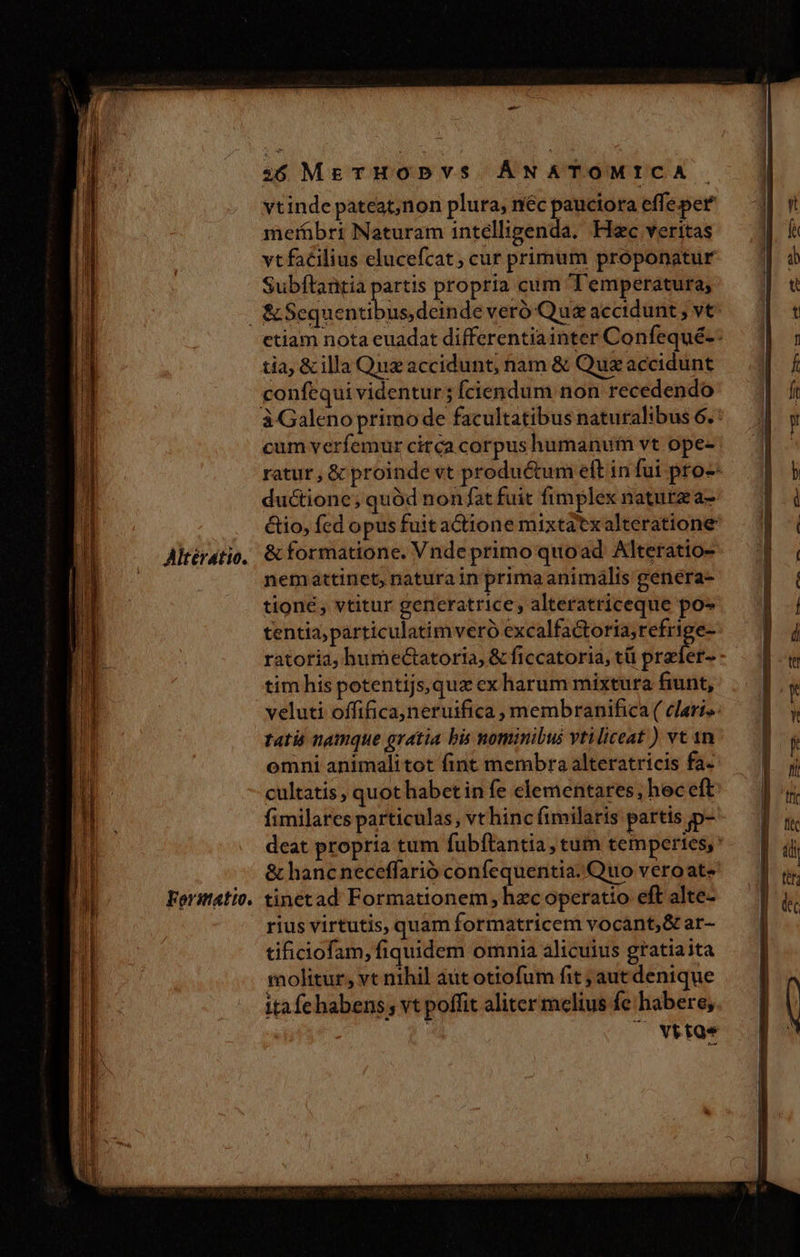 26 METHODVS ANATOMICA
vt inde pateat, non plura, nec pauciora eſſe per
membri Naturam intelligenda. Hæc veritas
vt facilius eluceſcat, cur primum proponatur
Subſtantia partis propria cum Temperatura,
& Sequentibus, deinde verò Quæ accidunt, vt
etiam nota euadat differentia inter Conſequé-
tia, & illa Quæ accidunt, nam & Quæ accidunt
conſequi videntur; ſciendum non recedendo
à Galeno primo de facultatibus naturalibus 6.
cum verſemur circa corpus humanum vt ope-
ratur, & proinde vt productum eſt in ſui pro-
ductione, quòd non ſat fuit ſimplex naturæ a-
ctio, ſed opus fuit actione mixta ex alteratione
Alteratio. & formatione. Vnde primo quoad Alteratio-
nem attinet, natura in prima animalis genera-
tione, vtitur generatrice, alteratriceque po-
tentia, particulatim verò excalfactoria, refrige-
ratoria, humectatoria, & ſiccatoria, tū præſer-
tim his potentijs, quæ ex harum mixtura fiunt,
veluti oſſifica, neruifica, membranifica (clari-
tatis namque gratia his nominibus vti liceat) vt in
omni animali tot ſint membra alteratricis fa-
cultatis, quot habet in ſe elementares, hoc eſt
ſimilares particulas, vt hinc ſimilaris partis ꝓ-
deat propria tum ſubſtantia, tum temperies,
& hanc neceſſariò conſequentia. Quo vero at-
Formatio. tinet ad Formationem, hæc operatio eſt alte-
rius virtutis, quam formatricem vocant, & ar-
tificioſam, ſiquidem omnia alicuius gratia ita
molitur, vt nihil aut otioſum ſit, aut denique
ita ſe habens, vt poſſit aliter melius ſe habere,
vtta-